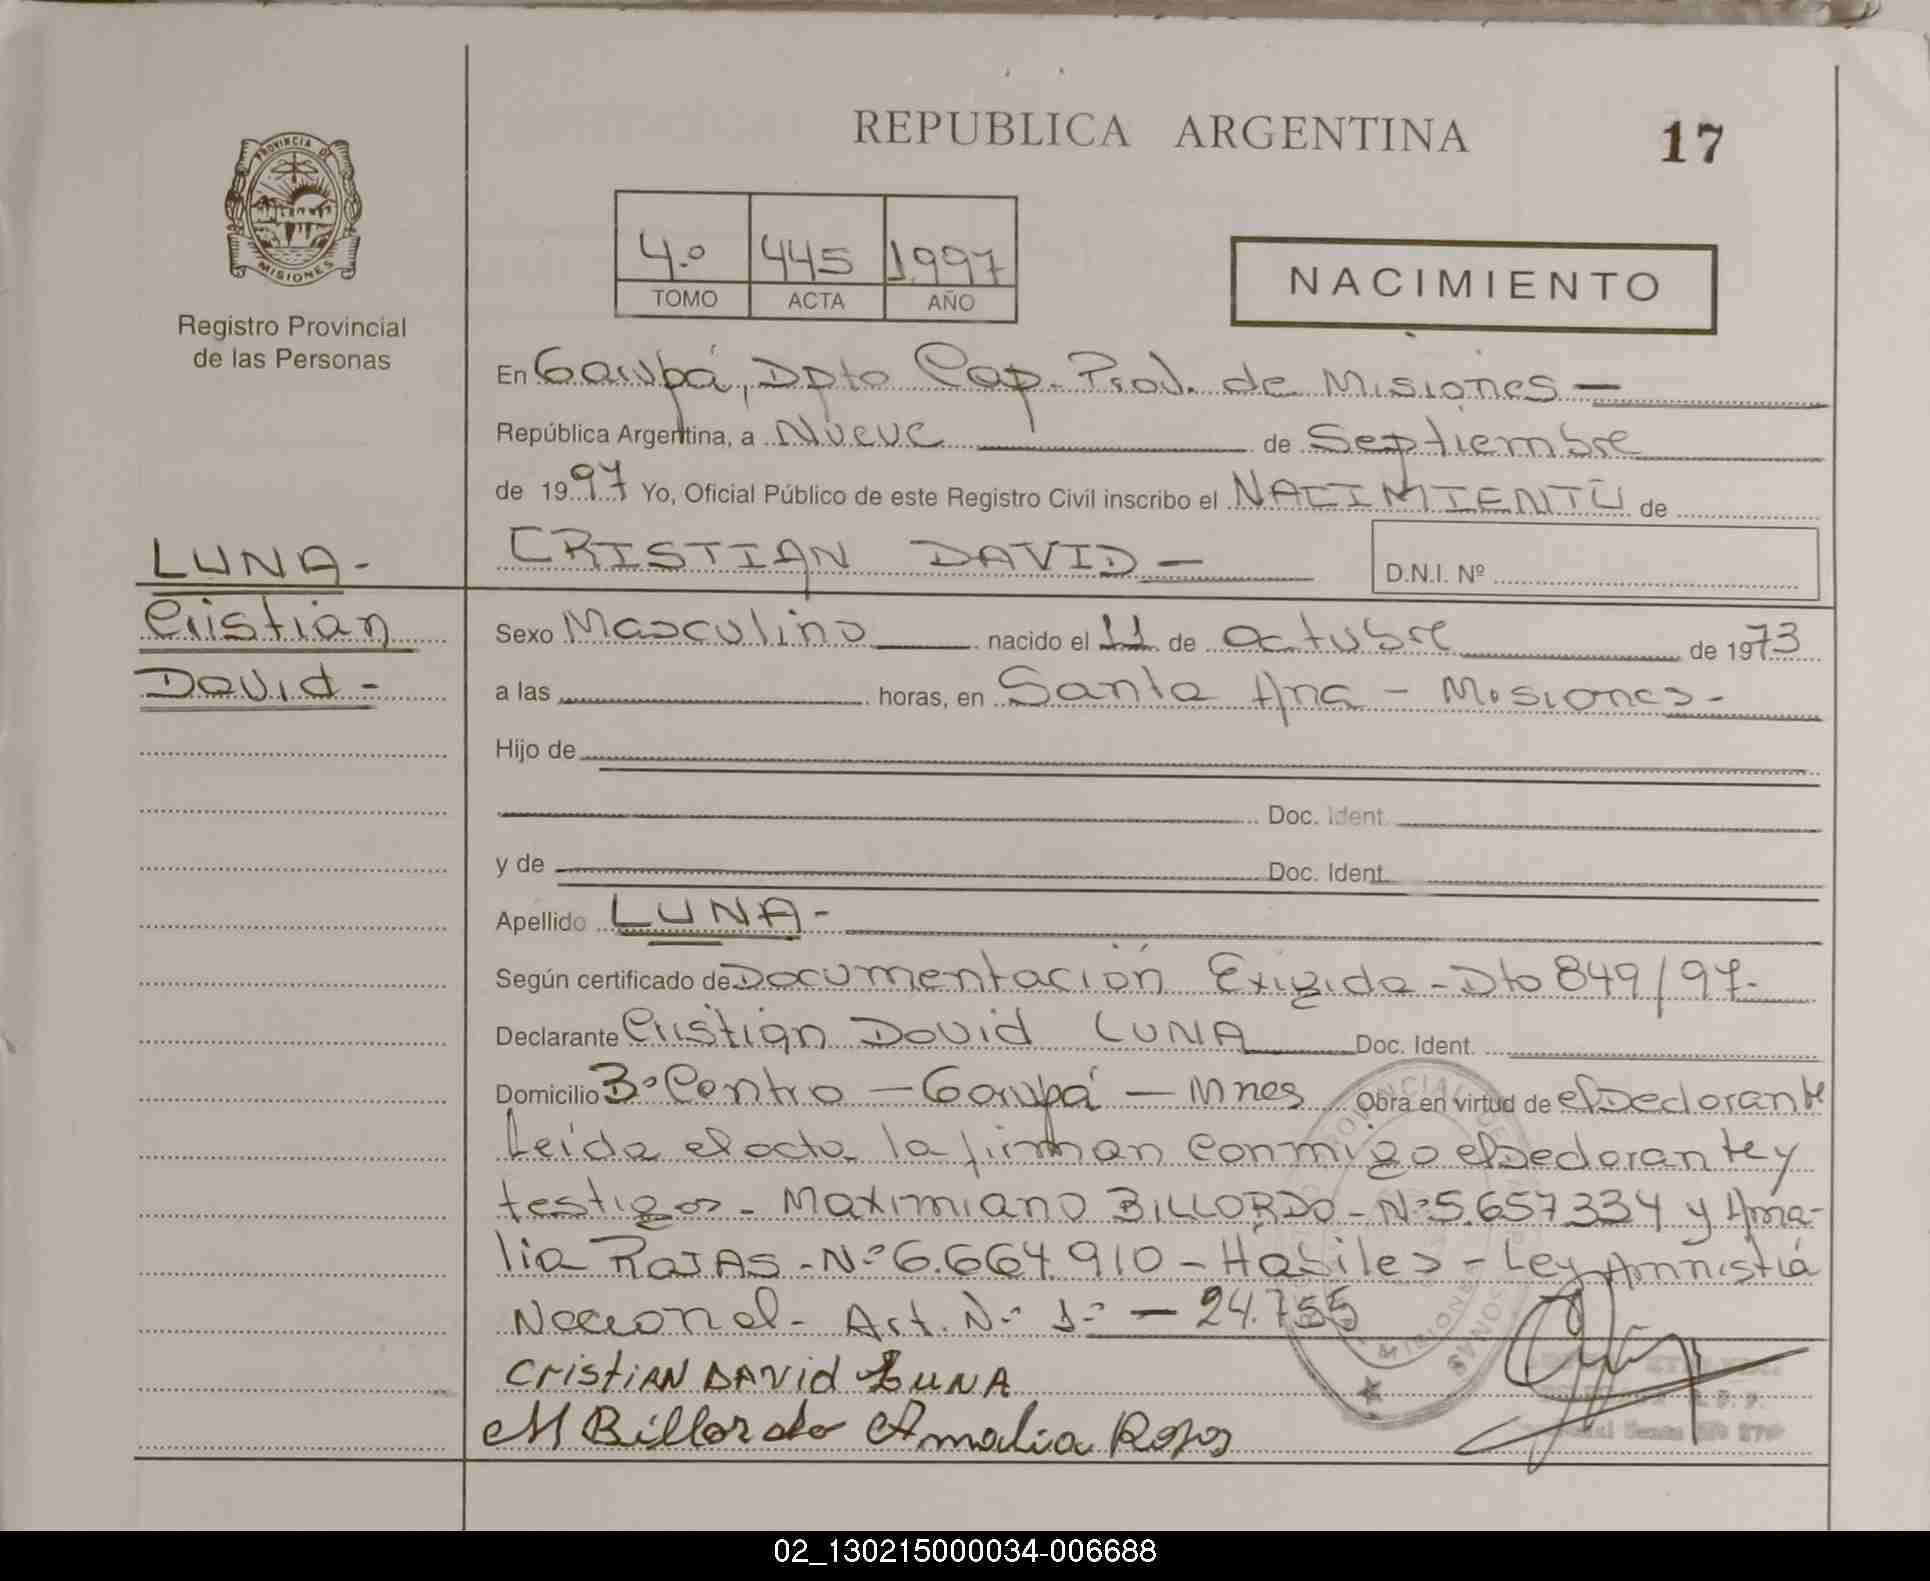 REPUBLICA ARGENTINA
17
PROVINCIA DE
MISIONES
Registro Provincial
de las Personas
4.º 445 1997
TOMO ACTA AÑO
NACIMIENTO
En Garupá, Dpto Cap. Prov. de Misiones —
República Argentina, a Nueve de Septiembre
de 1997 Yo, Oficial Público de este Registro Civil inscribo el NACIMIENTO de
CRISTIAN DAVID —
D.N.I. Nº
LUNA -
Cristian
David -
Sexo Masculino nacido el 11 de octubre de 1973
a las horas, en Santa Ana - Misiones -
Hijo de
Doc. Ident.
y de Doc. Ident.
Apellido LUNA -
Según certificado de Documentación Exigida - Dto 849/97-
Declarante Cristian David LUNA Doc. Ident.
Domicilio Bº Centro — Garupá — Mnes Obra en virtud de el Declarante
Leída el acta la firman conmigo el Declarante y
testigos - Maximiano BILLORDO - Nº 5.657.334 y Ama-
lia ROJAS - Nº 6.664.910 - Habiles - Ley Amnistía
Nacional - Art. Nº 1º — 24.755
CristiAN DAVid LUNA
M Billordo Amalia Rojas
02_130215000034-006688